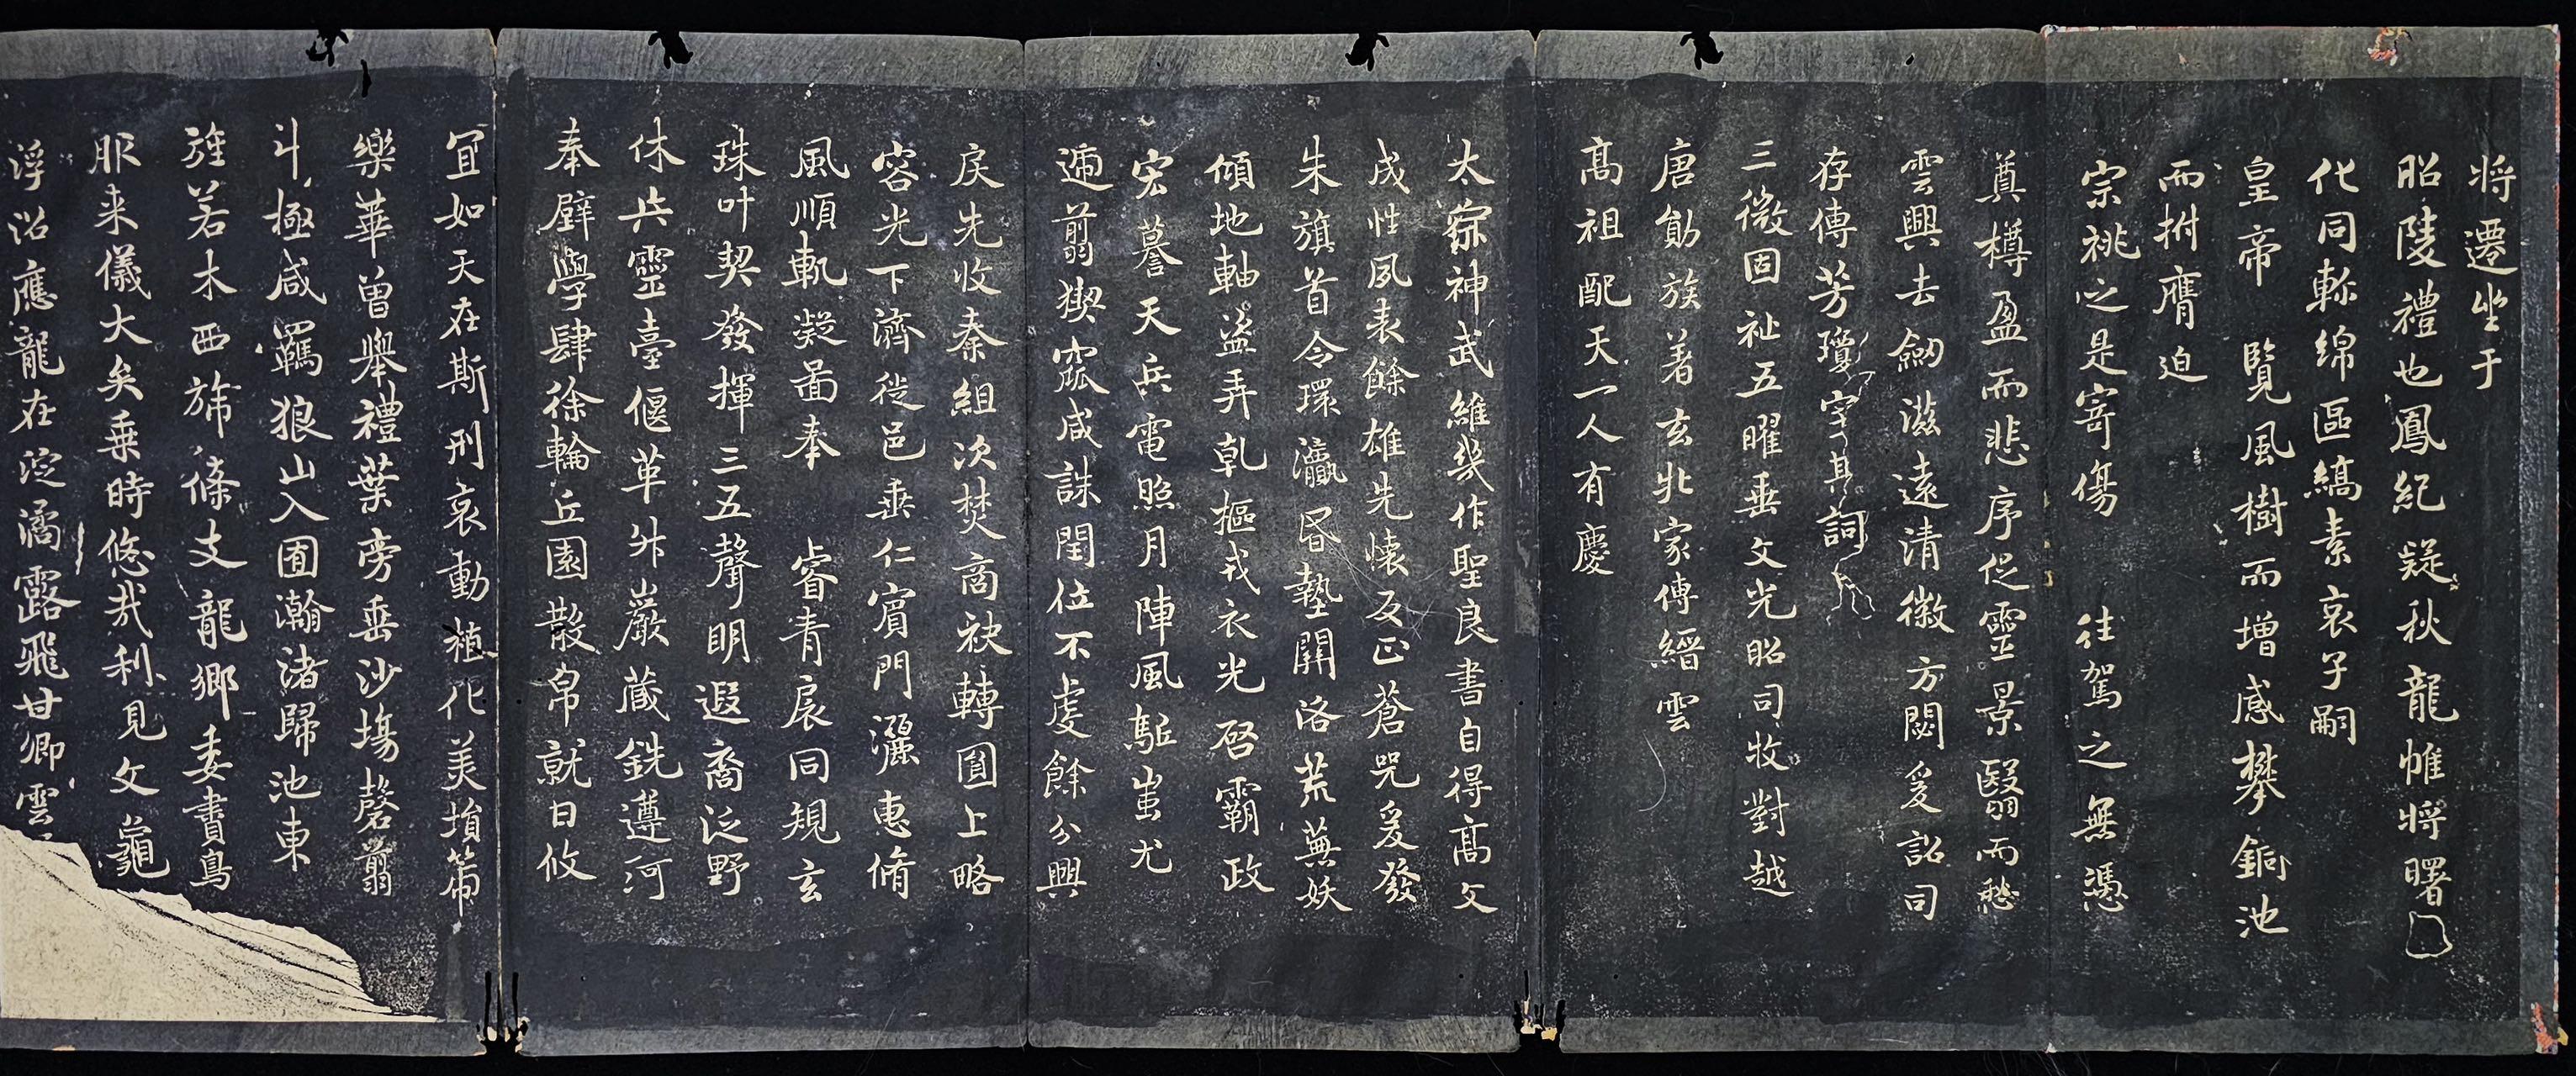 将遷坐于
昭陵禮也鳳紀疑秋龍帷将曙
化同軫綿區縞素哀子嗣
皇帝覽風樹而增感攀銅池
而拊膺迫
宗祧之是寄傷往駕之無憑
奠樽盈而悲序促靈景翳而愁
雲興去劒滋遠清徽方閟爰詔司
存傳芳瓊字其詞
三微固祉五曜垂文光昭司牧對越
唐勛族著玄丠家傳縉雲
高祖配天一人有慶
太宗神武維幾作聖良書自得高文
成性夙表餘雄先懷反正蒼兕爰發
朱旗首令環瀛昬墊關洛荒蕪妖
傾地軸盗弄乹樞戎衣光啓霸政
宏謩天兵電照月陣風駈蚩尤
遄翦猰窳咸誅閏位不虔餘分興
戾先收秦組次焚商袂轉圓上略
容光下濟從邑垂仁賓門灑惠脩
風順軌凝圖奉睿青扆同規玄
珠叶契發揮三五聲明遐裔泛野
休兵靈臺偃革外巖蔵銑遵河
奉璧學肆徐輪丘園散帛就日攸
冝如天在斯刑哀動植化美墳箒
樂華曽舉禮葉旁垂沙塲磬翦
斗極咸羈狼山入囿瀚渚歸池東
旌若木西旆條支龍鄉委賮鳥
服来儀大矣乗時悠哉利見文龜
浮沼應龍在淀潏露飛甘卿雲